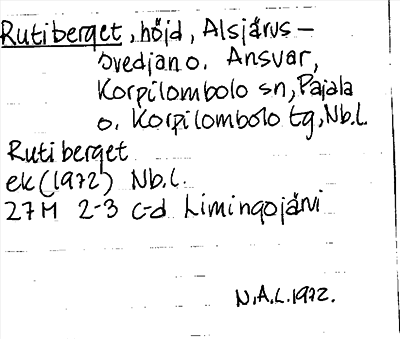 Rutiberget, höjd, Alsjärvs-
svedjan o. Ansvar,
Korpilombolo sn, Pajala
o. Korpilombolo tg, Nb.l.
Rutiberget
ek (1972) Nb.l.
27M 2-3 c-d Limingojärvi
N.A.L. 1972.